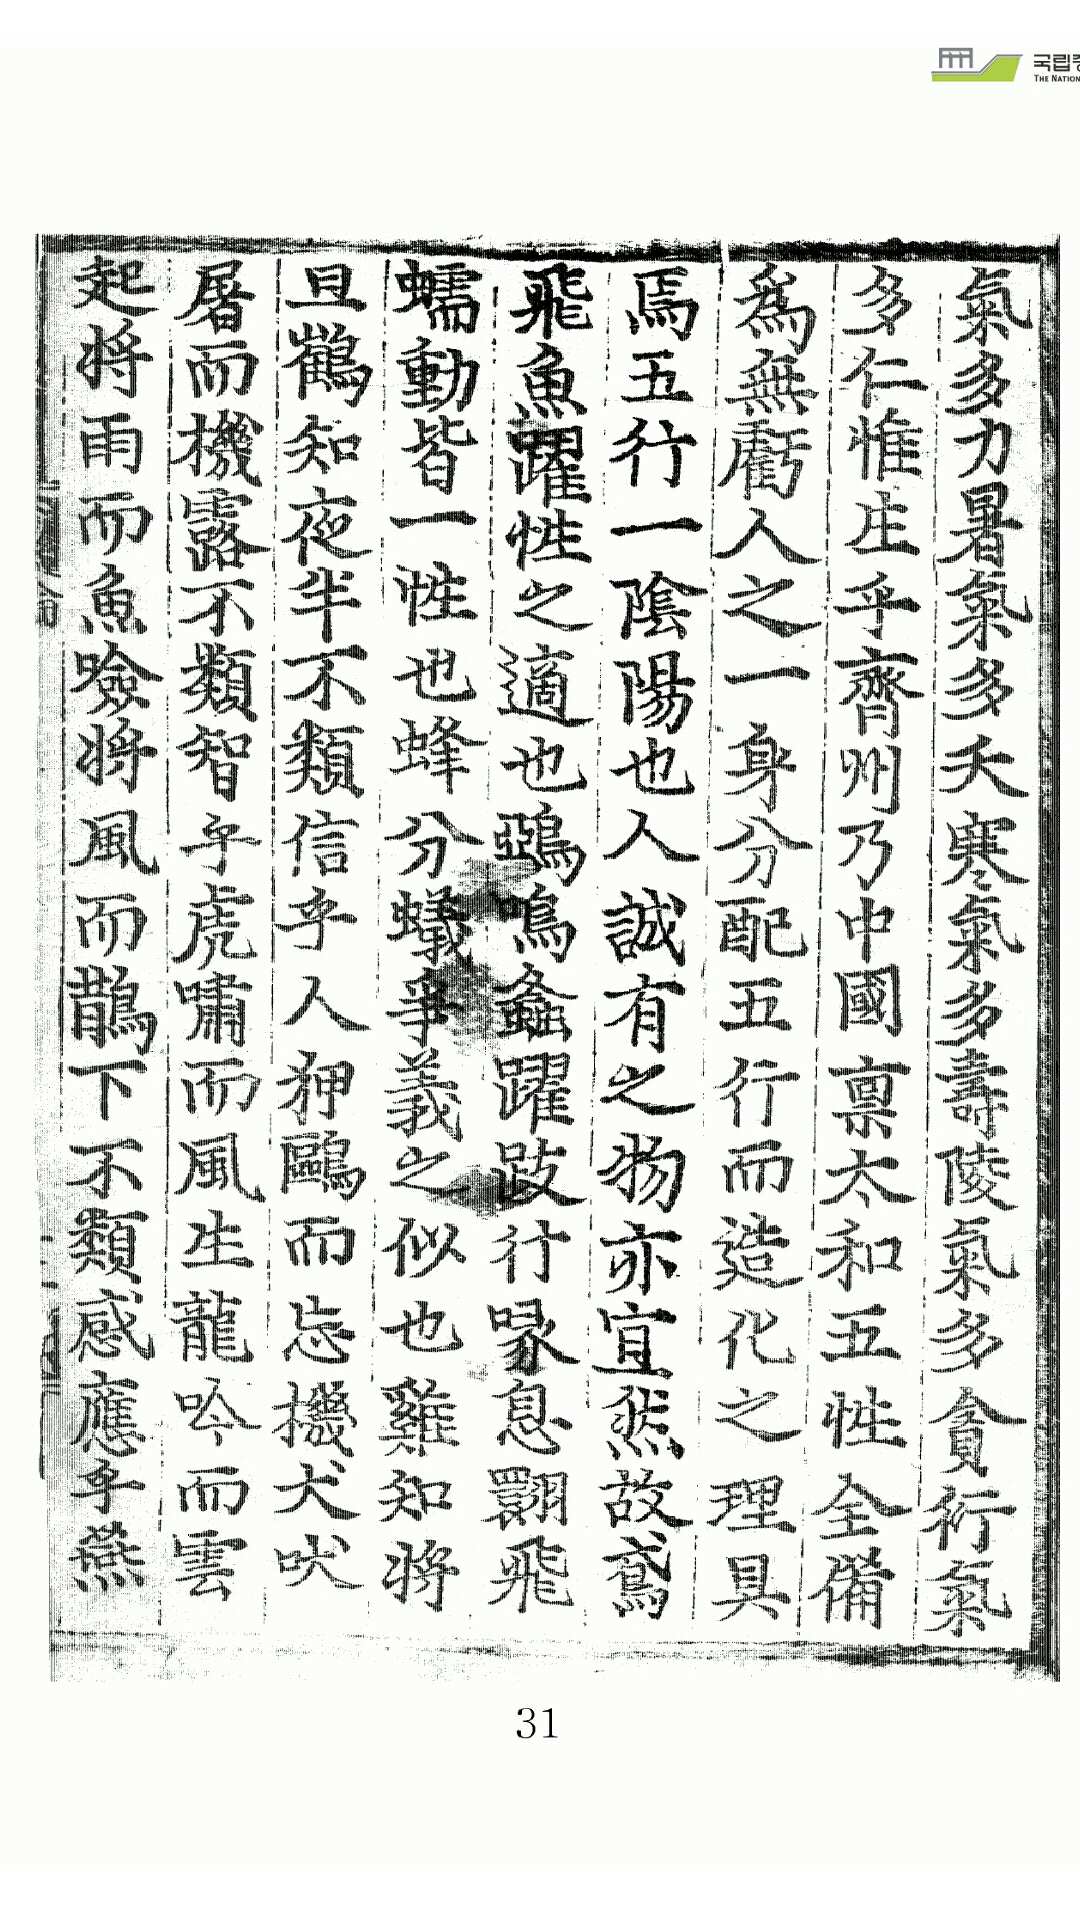 국립중
THE NATION
氣多力暑氣多夭寒氣多壽陵氣多貪衍氣
多仁惟生乎齊州乃中國禀太和五性全備
爲無虧人之一身分配五行而造化之理具
焉五行一陰陽也人誠有之物亦宜然故鳶
飛魚躍性之適也鵶鳴螽躍跂行喙息翾飛
蠕動皆一性也蜂分蟻爭義之似也雞知將
旦鶴知夜半不類信乎人狎鷗而忘機犬吠
屠而機露不類智乎虎嘯而風生龍吟而雲
起將雨而魚噞將風而鵲下不類感應乎燕
31